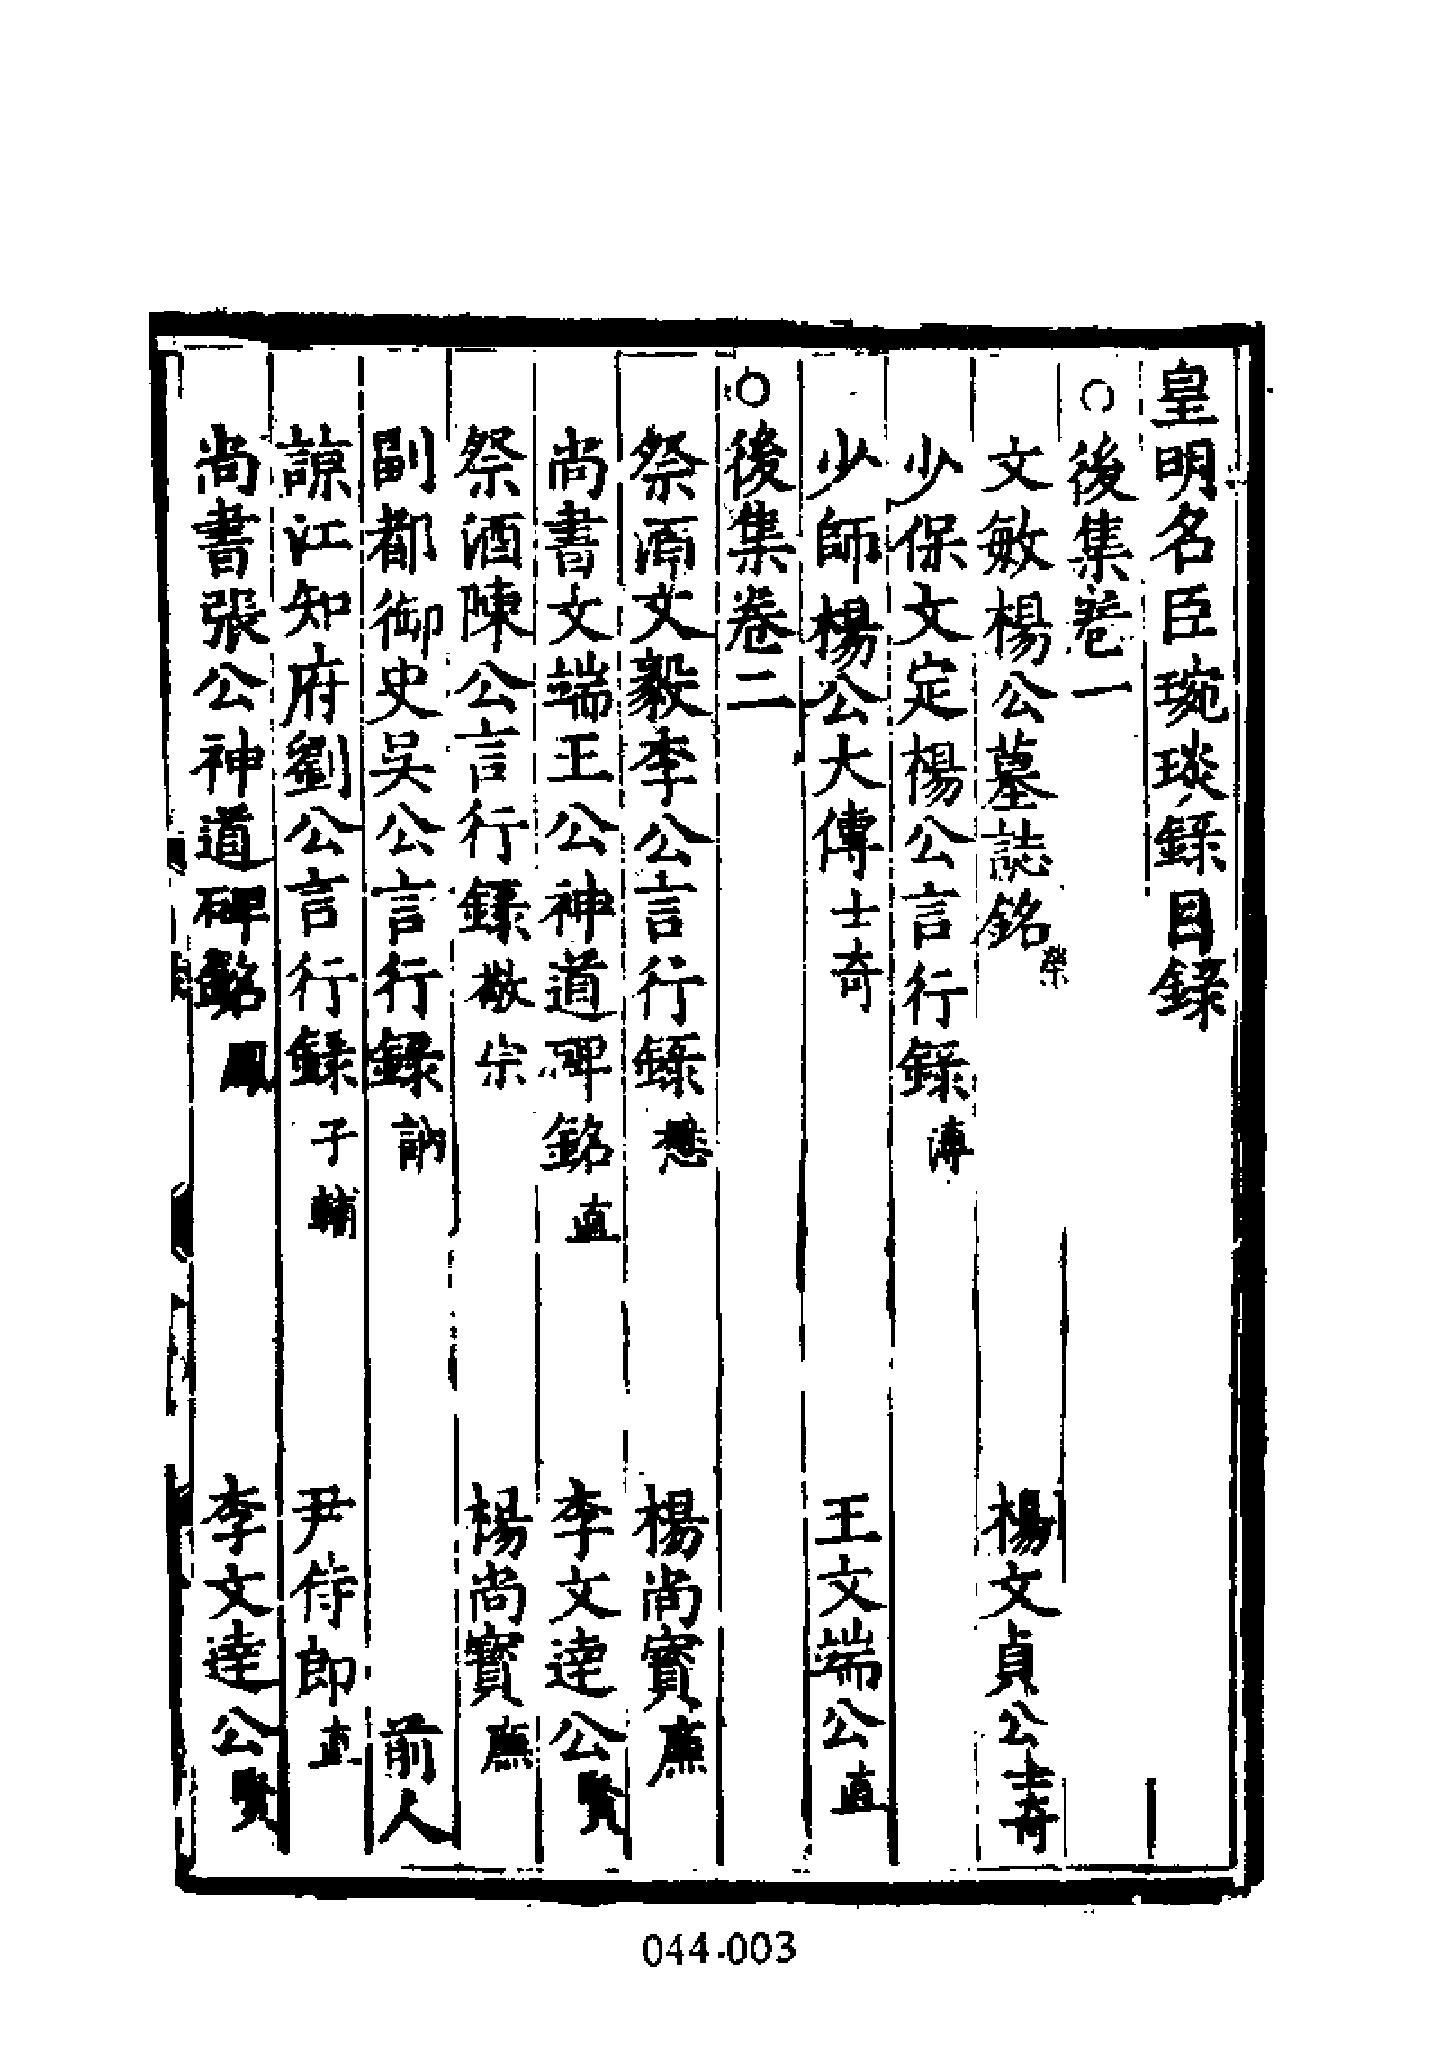 皇明名臣琬琰錄目錄
○後集卷一
文敏楊公墓誌銘 榮 楊文貞公士奇
少保文定楊公言行錄 溥
少師楊公大傳 士奇 王文端公直
○後集卷二
祭酒文毅李公言行錄 懋 楊尚寳廉
尚書文端王公神道碑銘 直 李文達公賢
祭酒陳公言行錄 敬宗 楊尚寳廉
副都御史吴公言行錄 訥 前人
諒江知府劉公言行錄 子輔 尹侍郎直
尚書張公神道碑銘 鳳 李文達公賢
044-003